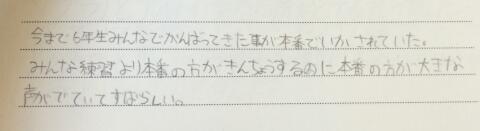 今まで6年生みんなでがんばってきた事が本番でいかされていた。
みんな練習より本番の方がきんちょうするのに本番の方が大きな
声がでていてすばらしい。